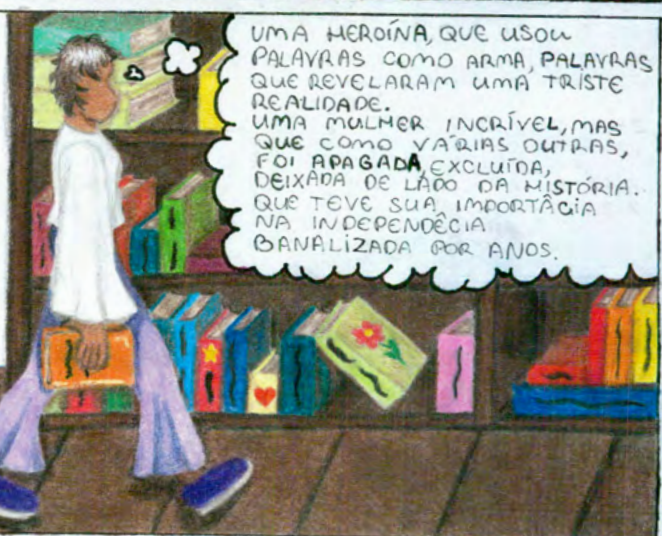 UMA HEROÍNA, QUE USOU
PALAVRAS COMO ARMA, PALAVRAS
QUE REVELARAM UMA TRISTE
REALIDADE.
UMA MULHER INCRÍVEL, MAS
QUE COMO VÁRIAS OUTRAS,
FOI APAGADA, EXCLUÍDA,
DEIXADA DE LADO DA HISTÓRIA.
QUE TEVE SUA IMPORTÂCIA
NA INDEPENDÊCIA
BANALIZADA POR ANOS.